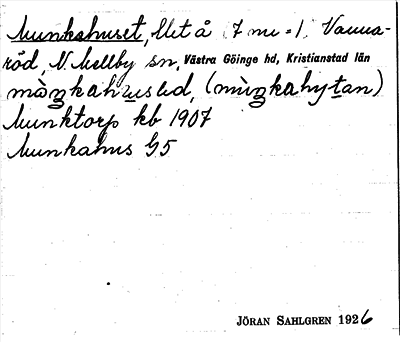 Munkahuset, lht å (7 mu = 1, Vanna-
röd, N. Mellby sn, Västra Göinge hd, Kristianstad län
(
Munktorp kb 1907
Munkahus G5
JÖRAN SAHLGREN 1926